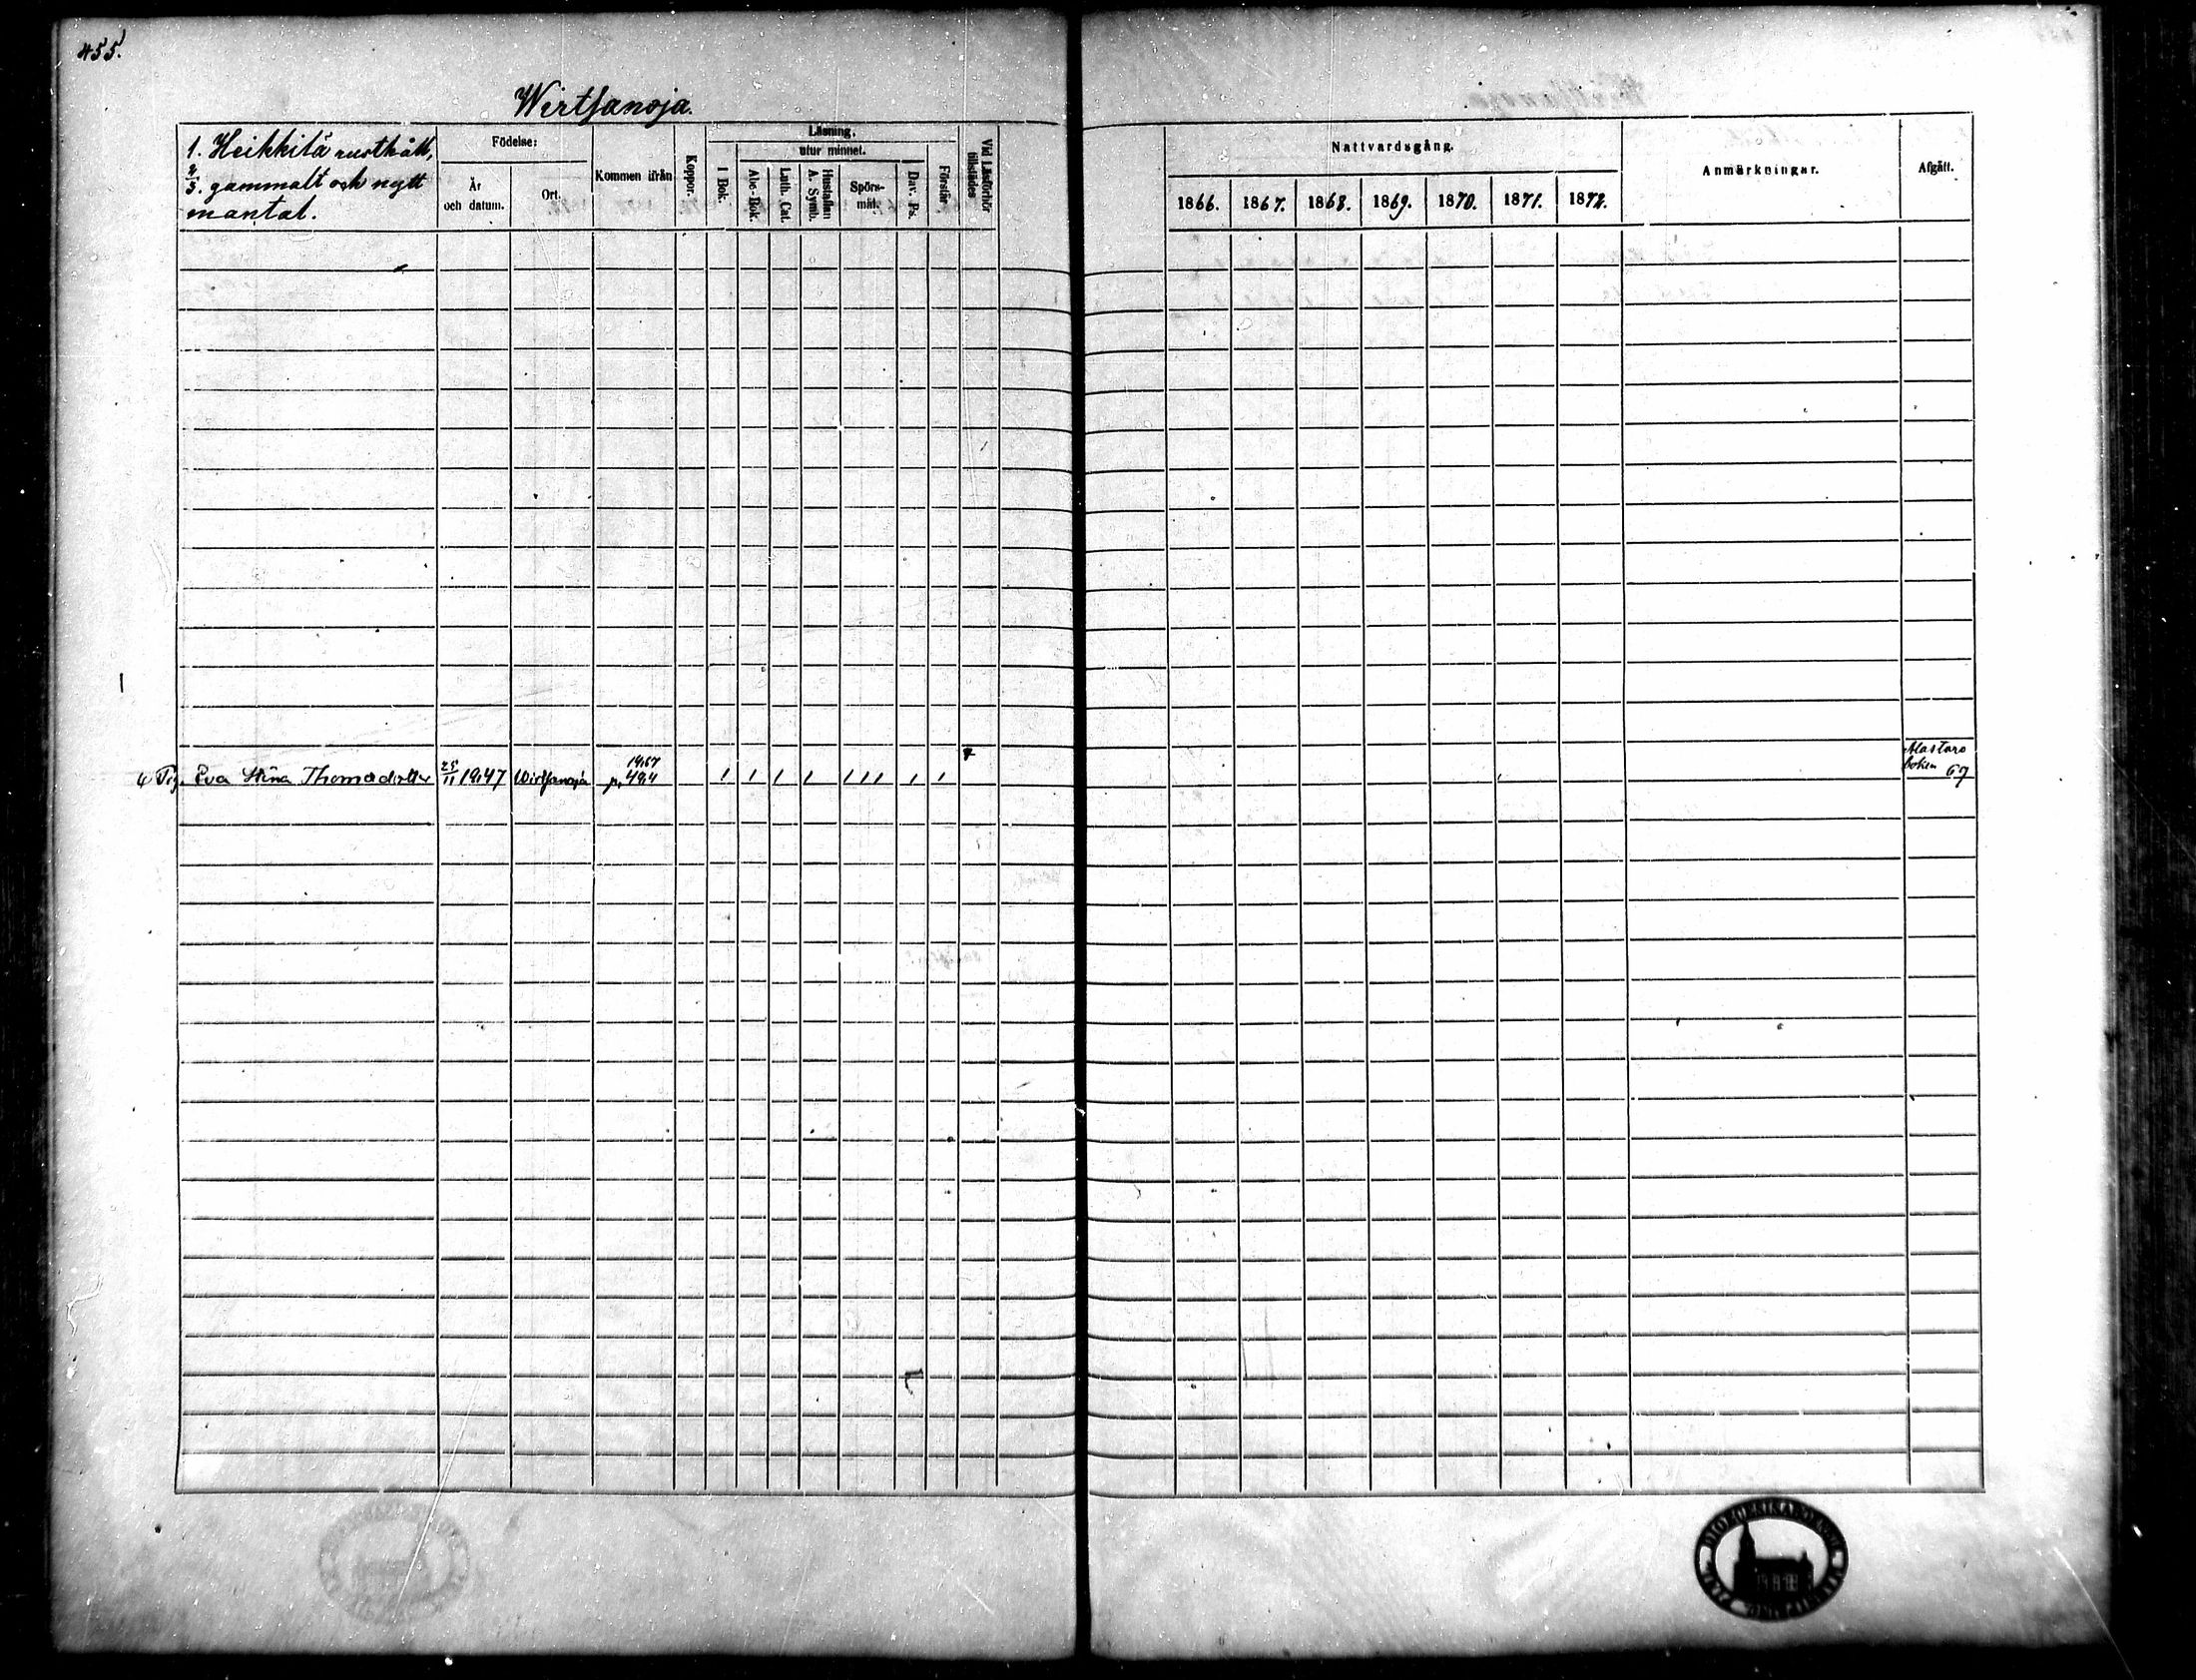 455.
Wirtsanoja.
1. Heikkilä rusthåll,
2/3. gammalt och nytt
mantal.
Födelse:
År
och datum.
Ort.
Kommen ifrån
Koppor.
Läsning.
utur minnet.
I Bok.
Abc-Bok.
Luth. Cat.
Hustaflan
A. Symb.
Spörs-
mål.
Dav. Ps.
Förstår
Vid Läsförhör
tillstädes
Nattvardsgång.
1866. 1867. 1868. 1869. 1870. 1871. 1872.
Anmärkningar.
Afgått.
Pig. Eva Stina Thomadotter 25/11 1847 Wirtsanoja 1867 p. 494
Alastaro
boken 69